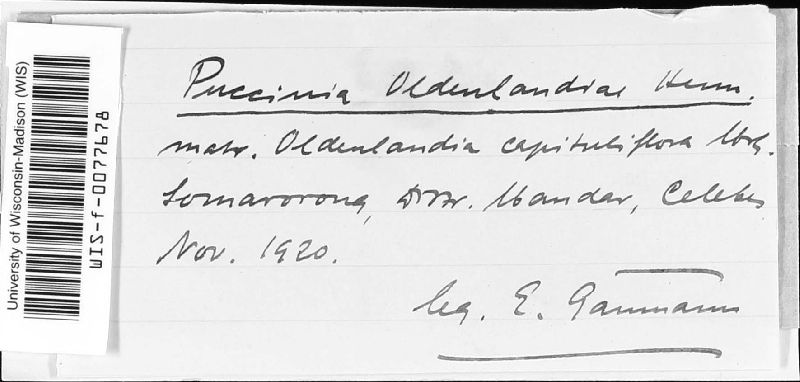 University of Wisconsin-Madison (WIS)
WIS-f-0077678
Puccinia Oldenlandiae Henn.
matr. Oldenlandia capituliflora
Somarorong, Mandar, Celebes
Nov. 1920.
leg. E. Gäumann